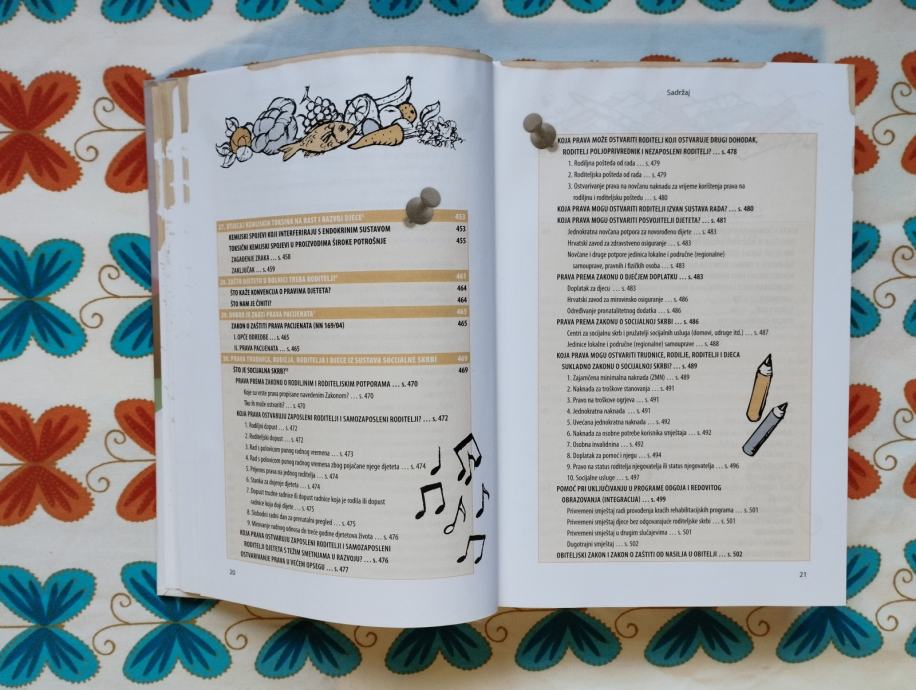 27. UTJECAJ KEMIJSKIH TOKSINA NA RAST I RAZVOJ DJECE 453
KEMIJSKI SPOJEVI KOJI INTERFERIRAJU S ENDOKRINIM SUSTAVOM 453
TOKSIČNI KEMIJSKI SPOJEVI U PROIZVODIMA ŠIROKE POTROŠNJE 455
ZAGAĐENJE ZRAKA ... s. 458
ZAKLJUČAK ... s. 459
28. ZAŠTO DJETETU U BOLNICI TREBA RODITELJ? 461
ŠTO KAŽE KONVENCIJA O PRAVIMA DJETETA? 464
ŠTO NAM JE ČINITI? 464
29. DOBRO JE ZNATI PRAVA PACIJENATA 465
ZAKON O ZAŠTITI PRAVA PACIJENATA (NN 169/04) 465
I. OPĆE ODREDBE ... s. 465
II. PRAVA PACIJENATA ... s. 465
30. PRAVA TRUDNICA, RODILJA, RODITELJA I DJECE IZ SUSTAVA SOCIJALNE SKRBI 469
ŠTO JE SOCIJALNA SKRB? 469
PRAVA PREMA ZAKONU O RODILJNIM I RODITELJSKIM POTPORAMA ... s. 470
Koje su vrste prava propisane navedenim Zakonom? ... s. 470
Tko ih može ostvariti? ... s. 470
KOJA PRAVA OSTVARUJU ZAPOSLENI RODITELJI I SAMOZAPOSLENI RODITELJI? ... s. 472
1. Rodiljni dopust ... s. 472
2. Roditeljski dopust ... s. 472
3. Rad s polovicom punog radnog vremena ... s. 473
4. Rad s polovicom punog radnog vremena zbog pojačane njege djeteta ... s. 474
5. Prijenos prava na jednog roditelja ... s. 474
6. Stanka za dojenje djeteta ... s. 474
7. Dopust trudne radnice ili dopust radnice koja je rodila ili dopust
radnice koja doji dijete ... s. 475
8. Slobodni radni dan za prenatalni pregled ... s. 475
9. Mirovanje radnog odnosa do treće godine djetetova života ... s. 476
KOJA PRAVA OSTVARUJU ZAPOSLENI RODITELJI I SAMOZAPOSLENI
RODITELJI DJETETA S TEŽIM SMETNJAMA U RAZVOJU? ... s. 476
OSTVARIVANJE PRAVA U VEĆEM OPSEGU ... s. 477
20
Sadržaj
KOJA PRAVA MOŽE OSTVARITI RODITELJ KOJI OSTVARUJE DRUGI DOHODAK,
RODITELJ POLJOPRIVREDNIK I NEZAPOSLENI RODITELJ? ... s. 478
1. Rodiljna pošteda od rada ... s. 479
2. Roditeljska pošteda od rada ... s. 479
3. Ostvarivanje prava na novčanu naknadu za vrijeme korištenja prava na
rodiljnu i roditeljsku poštedu ... s. 480
KOJA PRAVA MOGU OSTVARITI RODITELJI IZVAN SUSTAVA RADA? ... s. 480
KOJA PRAVA MOGU OSTVARITI POSVOJITELJI DJETETA? ... s. 481
Jednokratna novčana potpora za novorođeno dijete ... s. 483
Hrvatski zavod za zdravstveno osiguranje ... s. 483
Novčane i druge potpore jedinica lokalne i područne (regionalne)
samouprave, pravnih i fizičkih osoba ... s. 483
PRAVA PREMA ZAKONU O DJEČJEM DOPLATKU ... s. 483
Doplatak za djecu ... s. 483
Hrvatski zavod za mirovinsko osiguranje ... s. 486
Određivanje pronatalitetnog dodatka ... s. 486
PRAVA PREMA ZAKONU O SOCIJALNOJ SKRBI ... s. 486
Centri za socijalnu skrb i pružatelji socijalnih usluga (domovi, udruge itd.) ... s. 487
Jedinice lokalne i područne (regionalne) samouprave ... s. 488
KOJA PRAVA MOGU OSTVARITI TRUDNICE, RODILJE, RODITELJI I DJECA
SUKLADNO ZAKONU O SOCIJALNOJ SKRBI? ... s. 489
1. Zajamčena minimalna naknada (ZMN) ... s. 489
2. Naknada za troškove stanovanja ... s. 491
3. Pravo na troškove ogrjeva ... s. 491
4. Jednokratna naknada ... s. 491
5. Uvećana jednokratna naknada ... s. 492
6. Naknada za osobne potrebe korisnika smještaja ... s. 492
7. Osobna invalidnina ... s. 492
8. Doplatak za pomoć i njegu ... s. 494
9. Pravo na status roditelja njegovatelja ili status njegovatelja ... s. 496
10. Socijalne usluge ... s. 497
POMOĆ PRI UKLJUČIVANJU U PROGRAME ODGOJA I REDOVITOG
OBRAZOVANJA (INTEGRACIJA) ... s. 499
Privremeni smještaj radi provođenja kraćih rehabilitacijskih programa ... s. 501
Privremeni smještaj djece bez odgovarajuće roditeljske skrbi ... s. 501
Privremeni smještaj u drugim slučajevima ... s. 501
Dugotrajni smještaj ... s. 502
OBITELJSKI ZAKON I ZAKON O ZAŠTITI OD NASILJA U OBITELJI ... s. 502
21